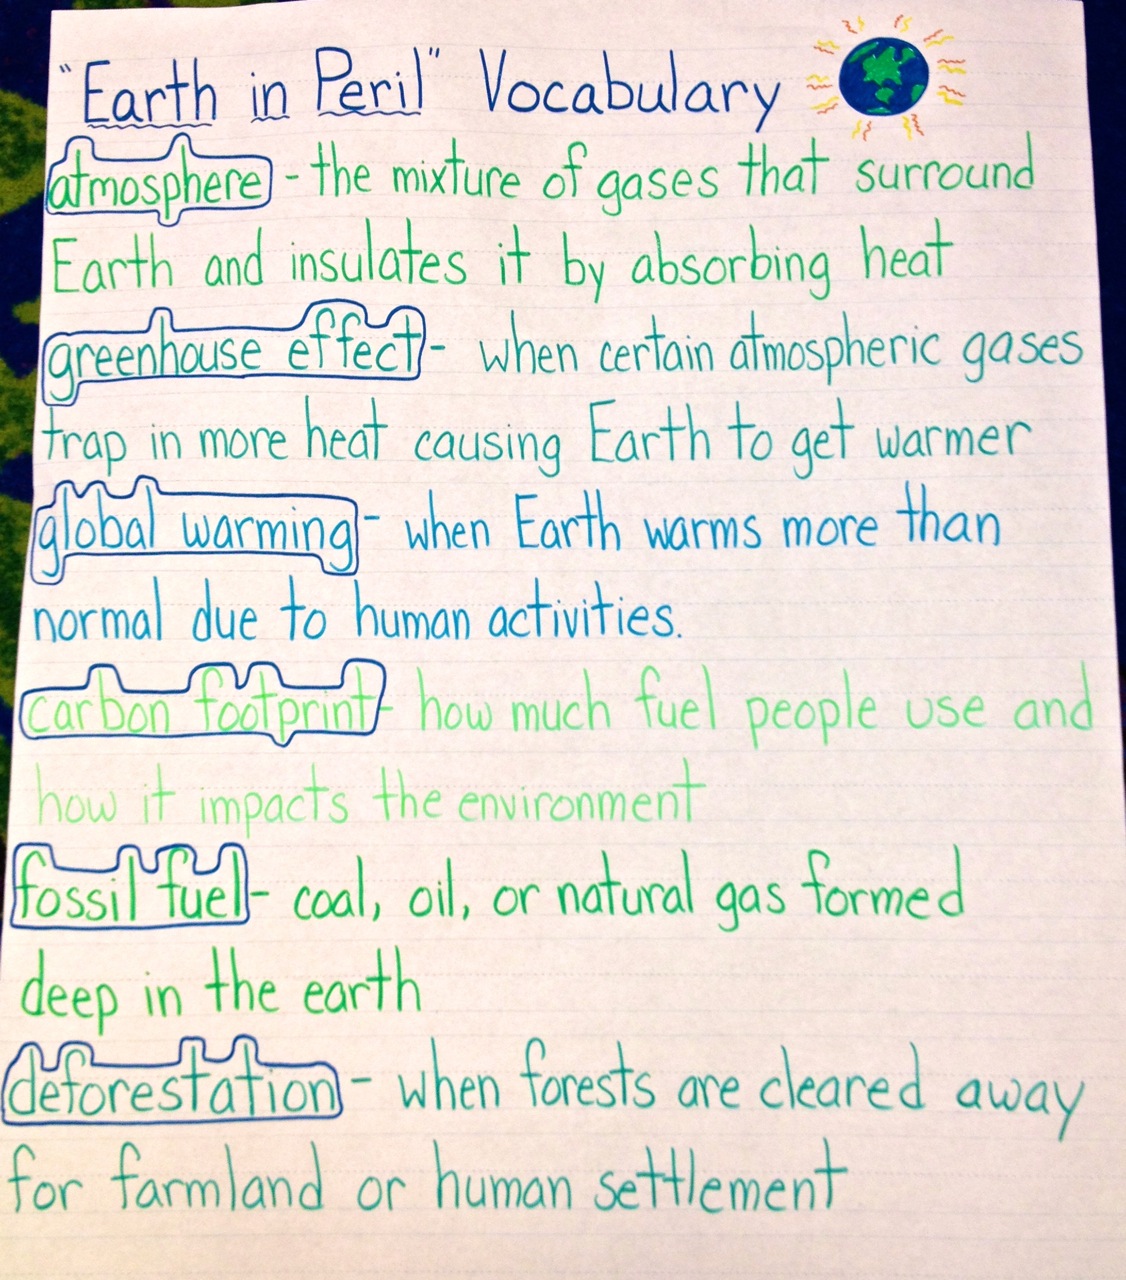 "Earth in Peril" Vocabulary
atmosphere - the mixture of gases that surround
Earth and insulates it by absorbing heat
greenhouse effect - when certain atmospheric gases
trap in more heat causing Earth to get warmer
global warming - when Earth warms more than
normal due to human activities.
carbon footprint - how much fuel people use and
how it impacts the environment
fossil fuel - coal, oil, or natural gas formed
deep in the earth
deforestation - when forests are cleared away
for farmland or human settlement